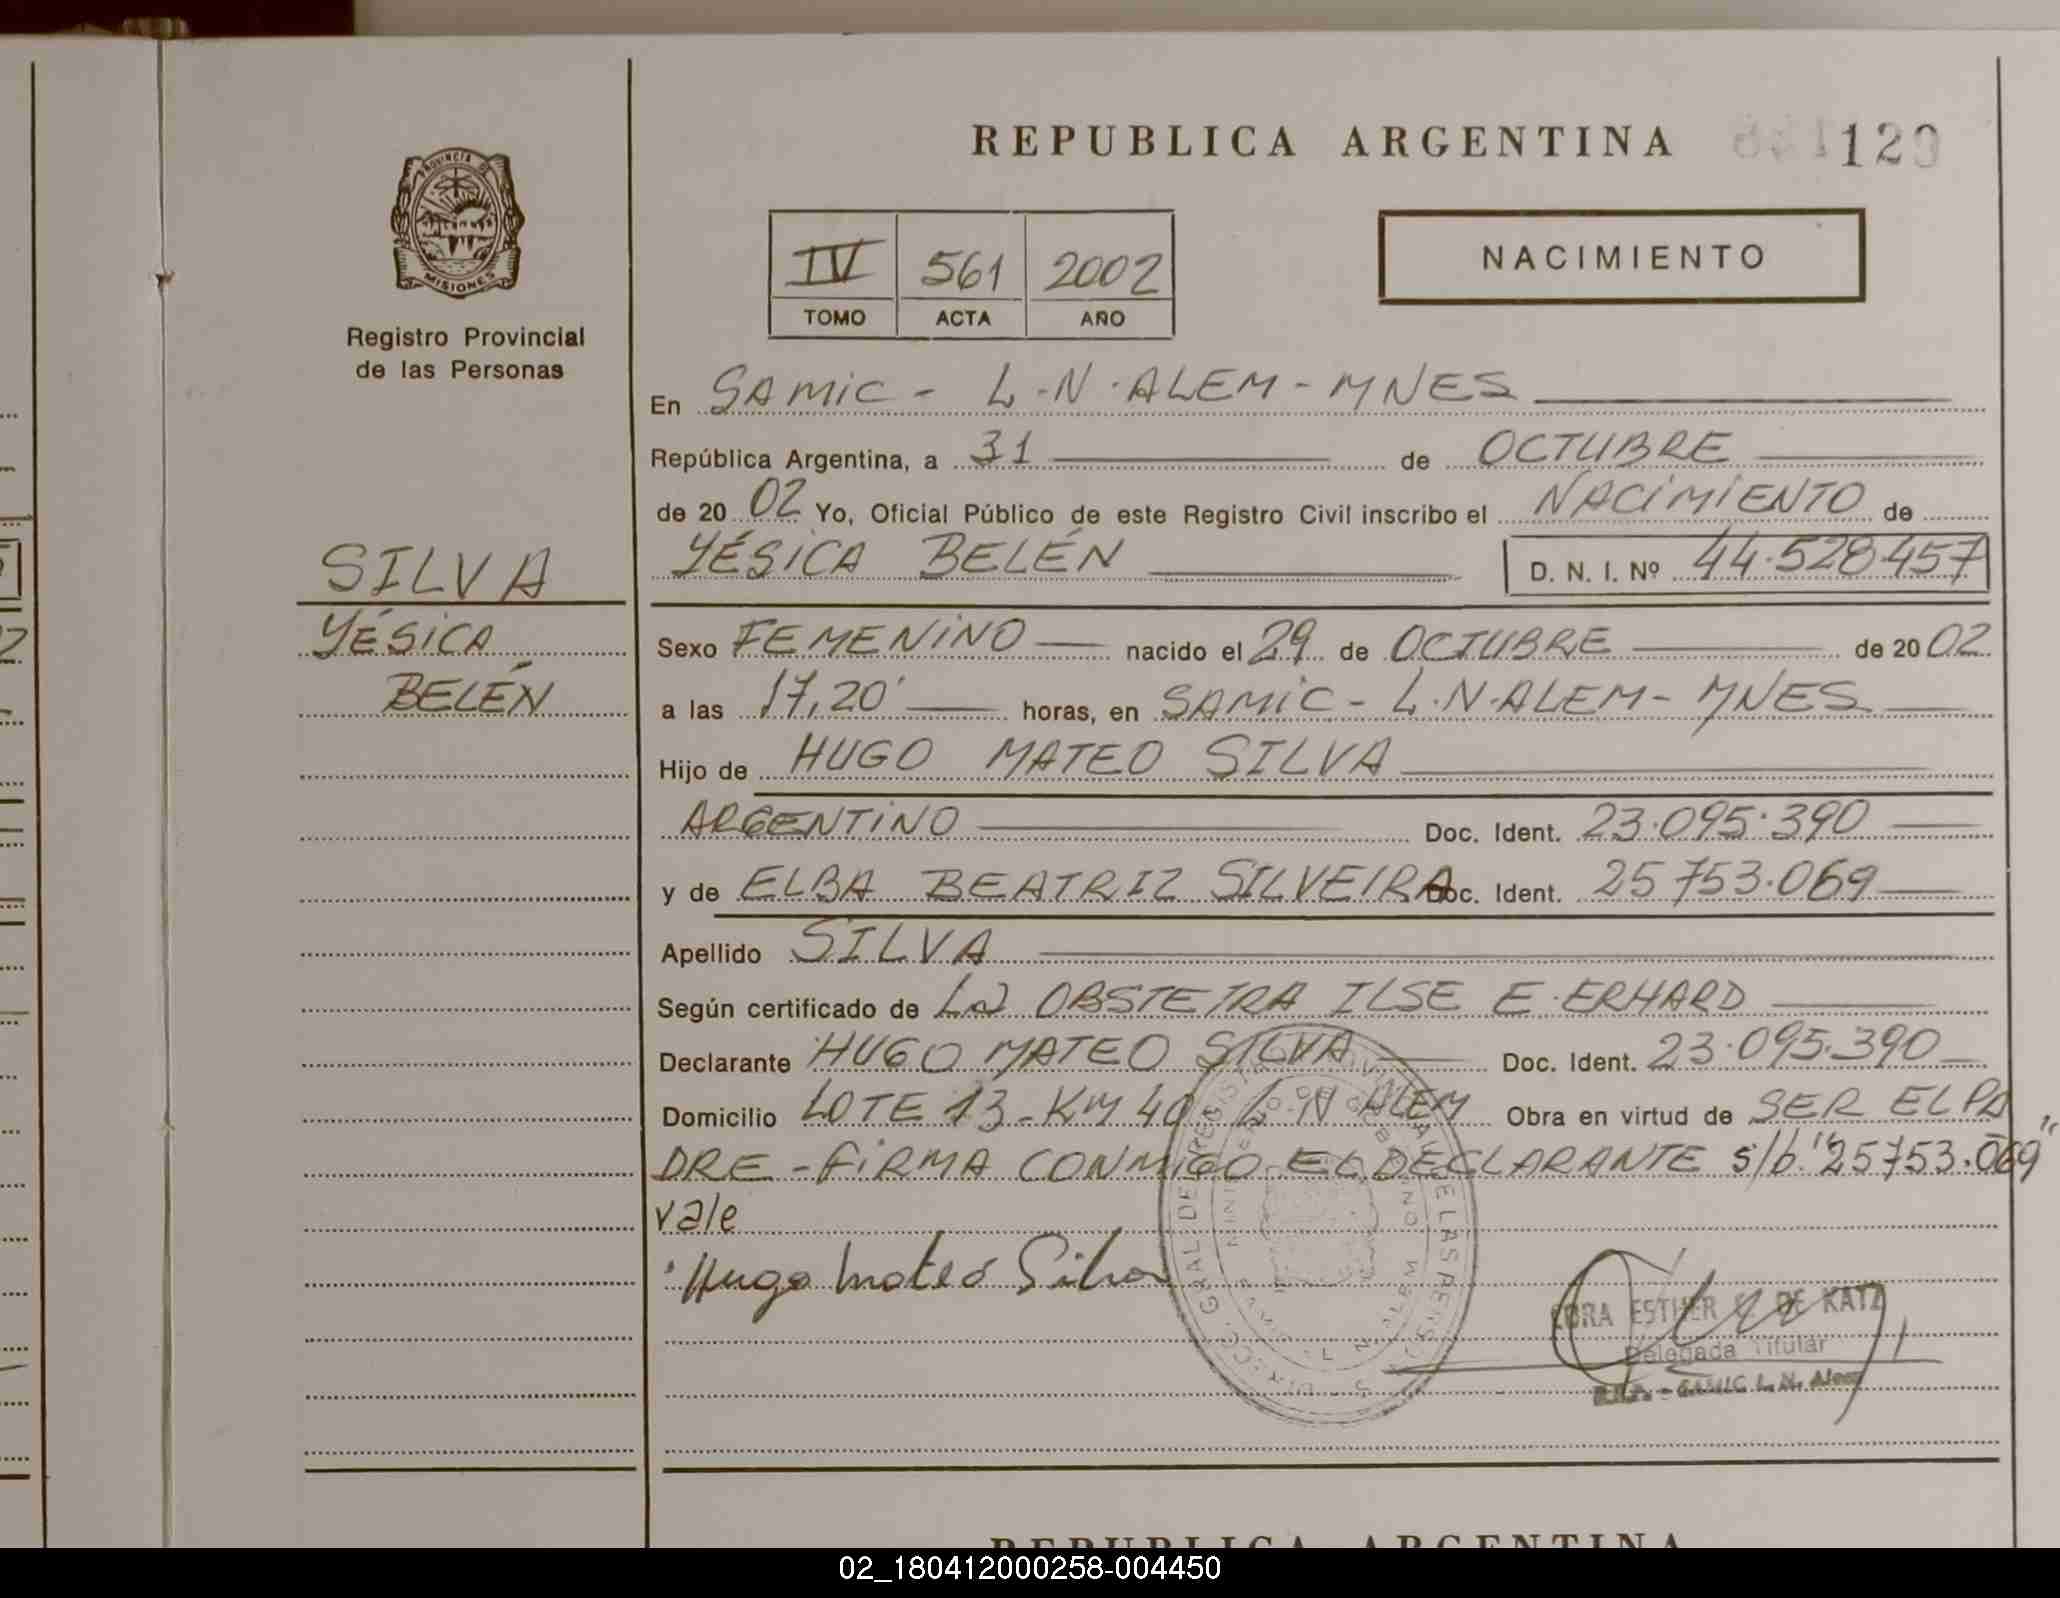 REPUBLICA ARGENTINA 129
PROVINCIA DE
MISIONES
Registro Provincial
de las Personas
IV 561 2002
TOMO ACTA AÑO
NACIMIENTO
En SAMIC - L.N.ALEM - MNES
República Argentina, a 31 de OCTUBRE
de 20 02 Yo, Oficial Público de este Registro Civil inscribo el NACIMIENTO de
YÉSICA BELÉN D. N. I. Nº 44.528.457
SILVA
YÉSICA
BELÉN
Sexo FEMENINO nacido el 29 de OCTUBRE de 20 02
a las 17,20' horas, en SAMIC - L.N.ALEM - MNES
Hijo de HUGO MATEO SILVA
ARGENTINO Doc. Ident. 23.095.390
y de ELBA BEATRIZ SILVEIRA Doc. Ident. 25753.069
Apellido SILVA
Según certificado de La OBSTETRA ILSE E. ERHARD
Declarante HUGO MATEO SILVA Doc. Ident. 23.095.390
Domicilio LOTE 13 - KM 40 L.N ALEM Obra en virtud de SER EL PA
DRE - FIRMA CONMIGO EL DECLARANTE s/b. "25753.069"
vale
Hugo Mateo Silva
ESTHER DE KATZ
Delegada Titular
SAMIC L. N. Alem
REPUBLICA ARGENTINA
02_180412000258-004450